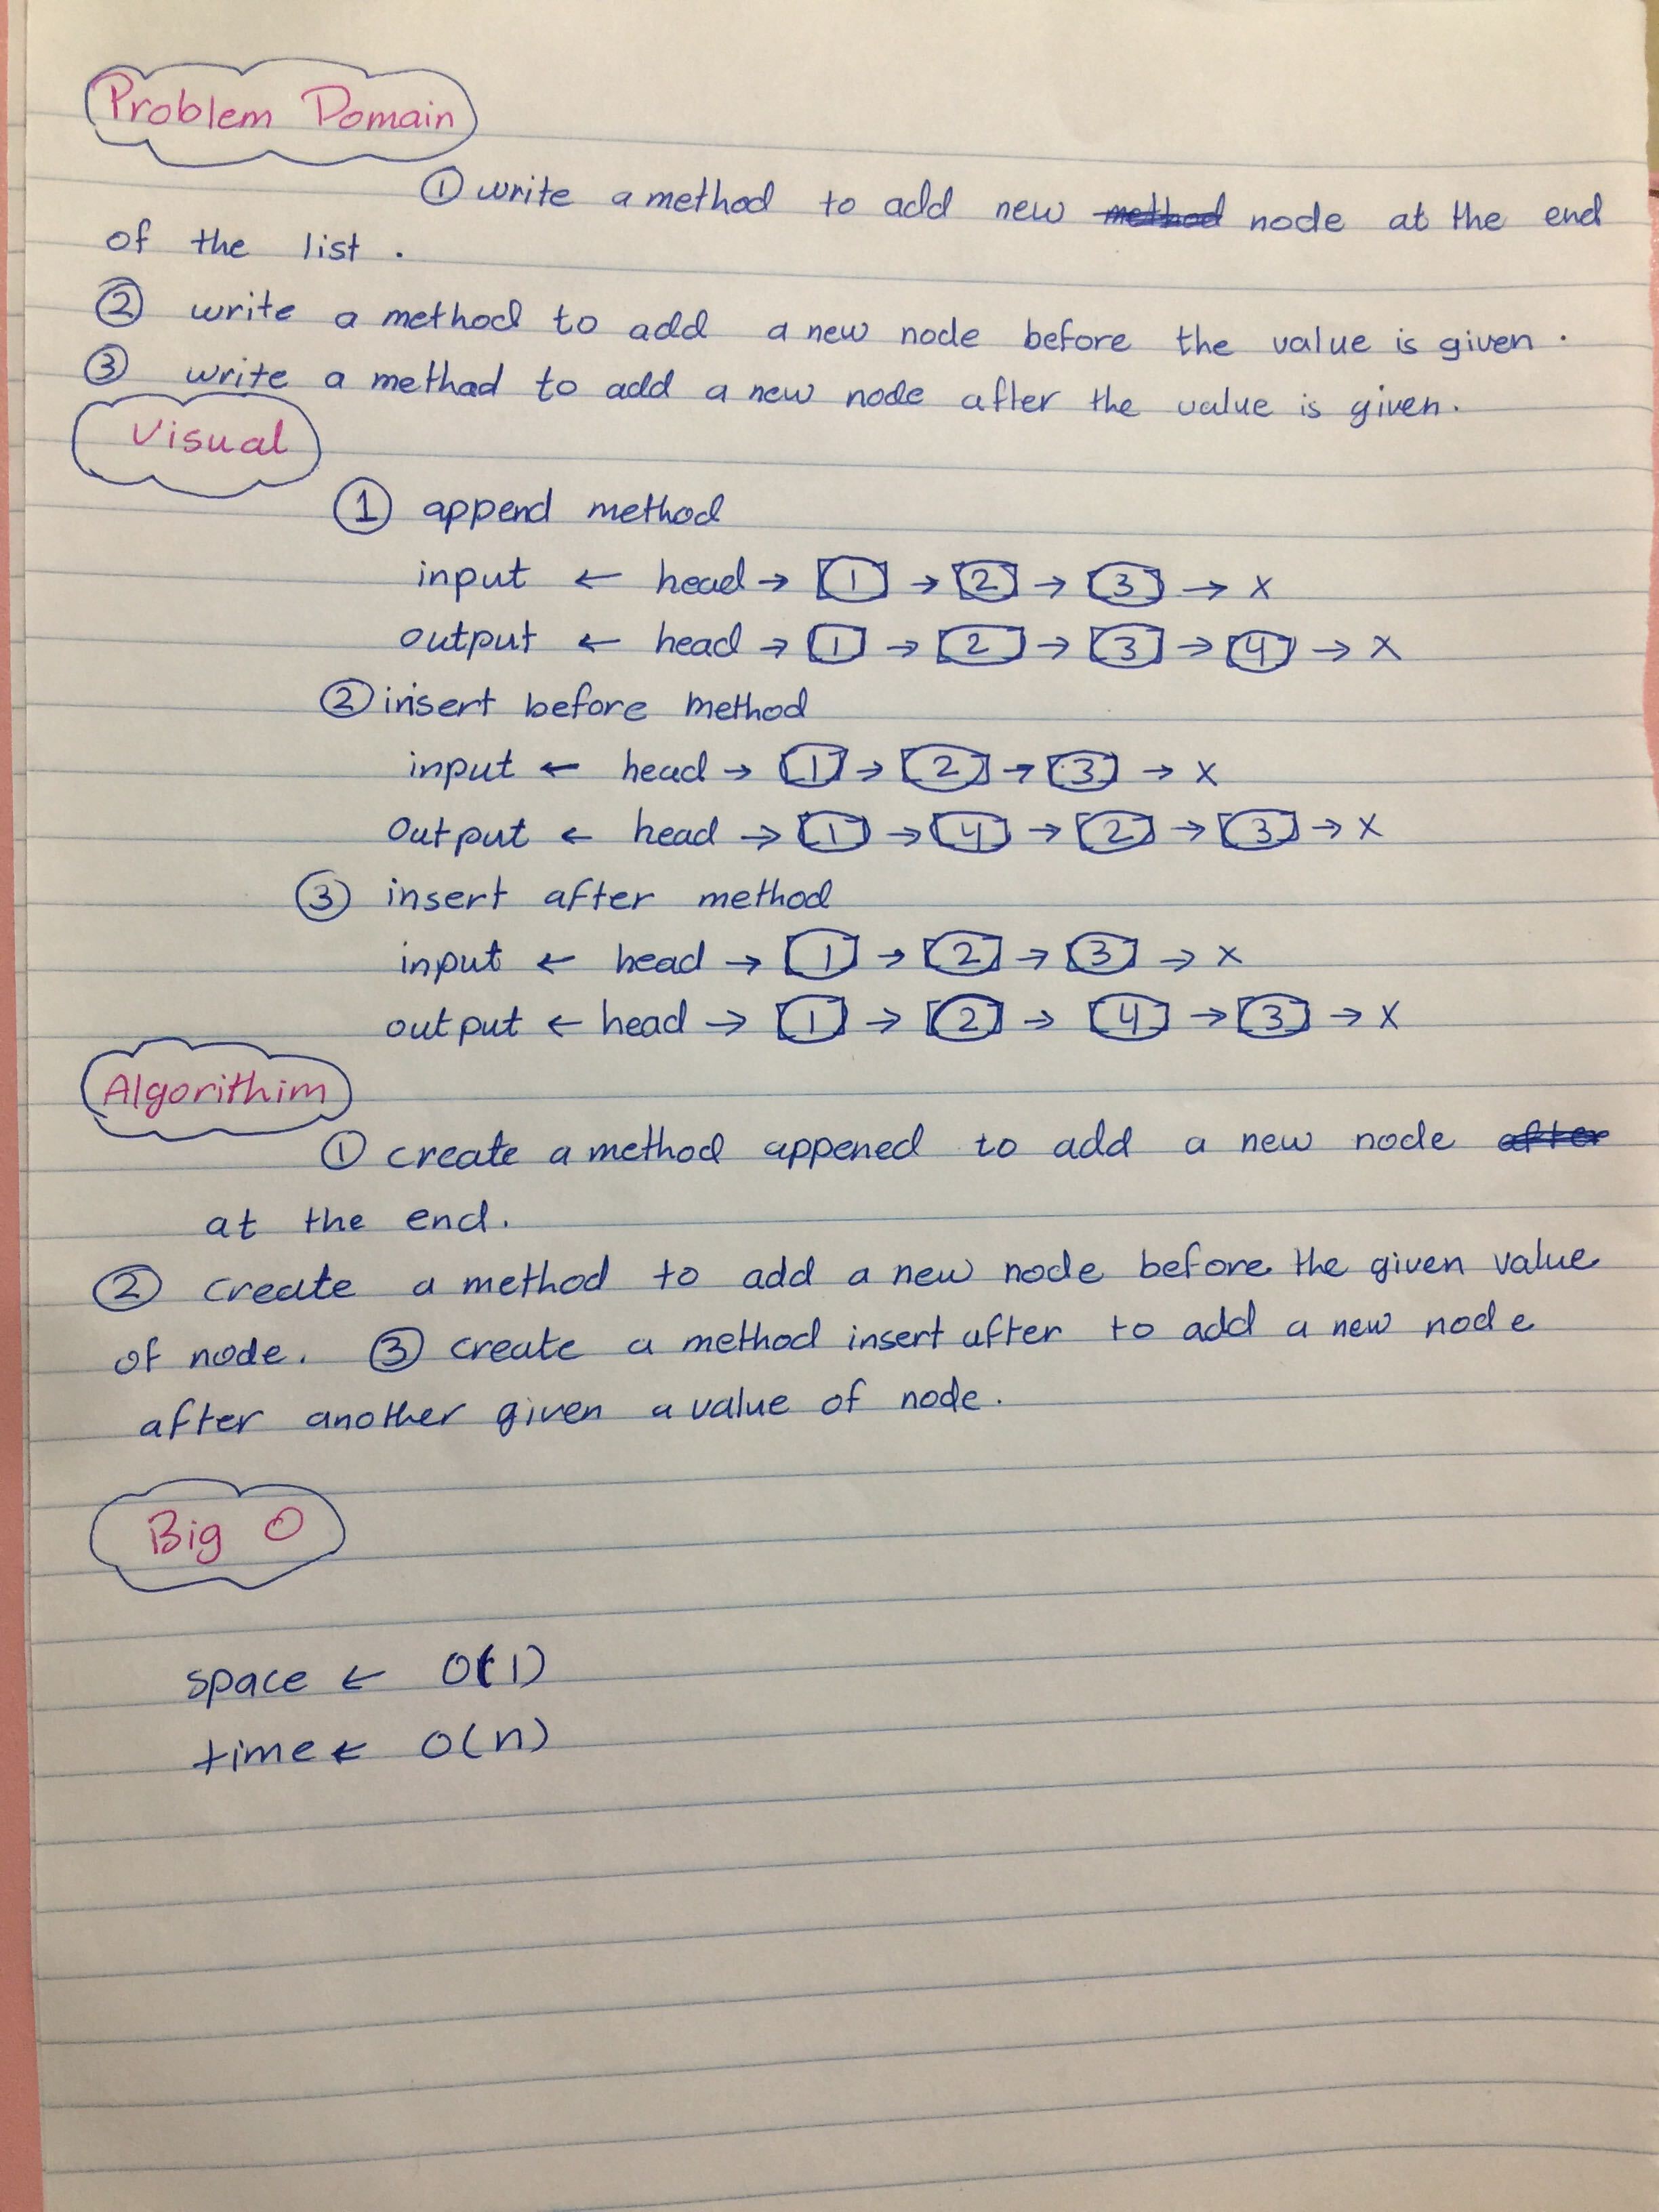 Problem Domain
① write a method to add new method node at the end
of the list .
② write a method to add a new node before the value is given .
③ write a methad to add a new node after the value is given.
Visual
① append method
input ← head → 1 → 2 → 3 → x
output ← head → 1 → 2 → 3 → 4 → x
② insert before method
input ← head → 1 → 2 → 3 → x
output ← head → 1 → 4 → 2 → 3 → x
③ insert after method
input ← head → 1 → 2 → 3 → x
output ← head → 1 → 2 → 4 → 3 → x
Algorithim
① create a method appened to add a new node after
at the end.
② create a method to add a new node before the given value
of node. ③ create a method insert after to add a new node
after another given a value of node.
Big O
space ← O(1)
time ← O(n)